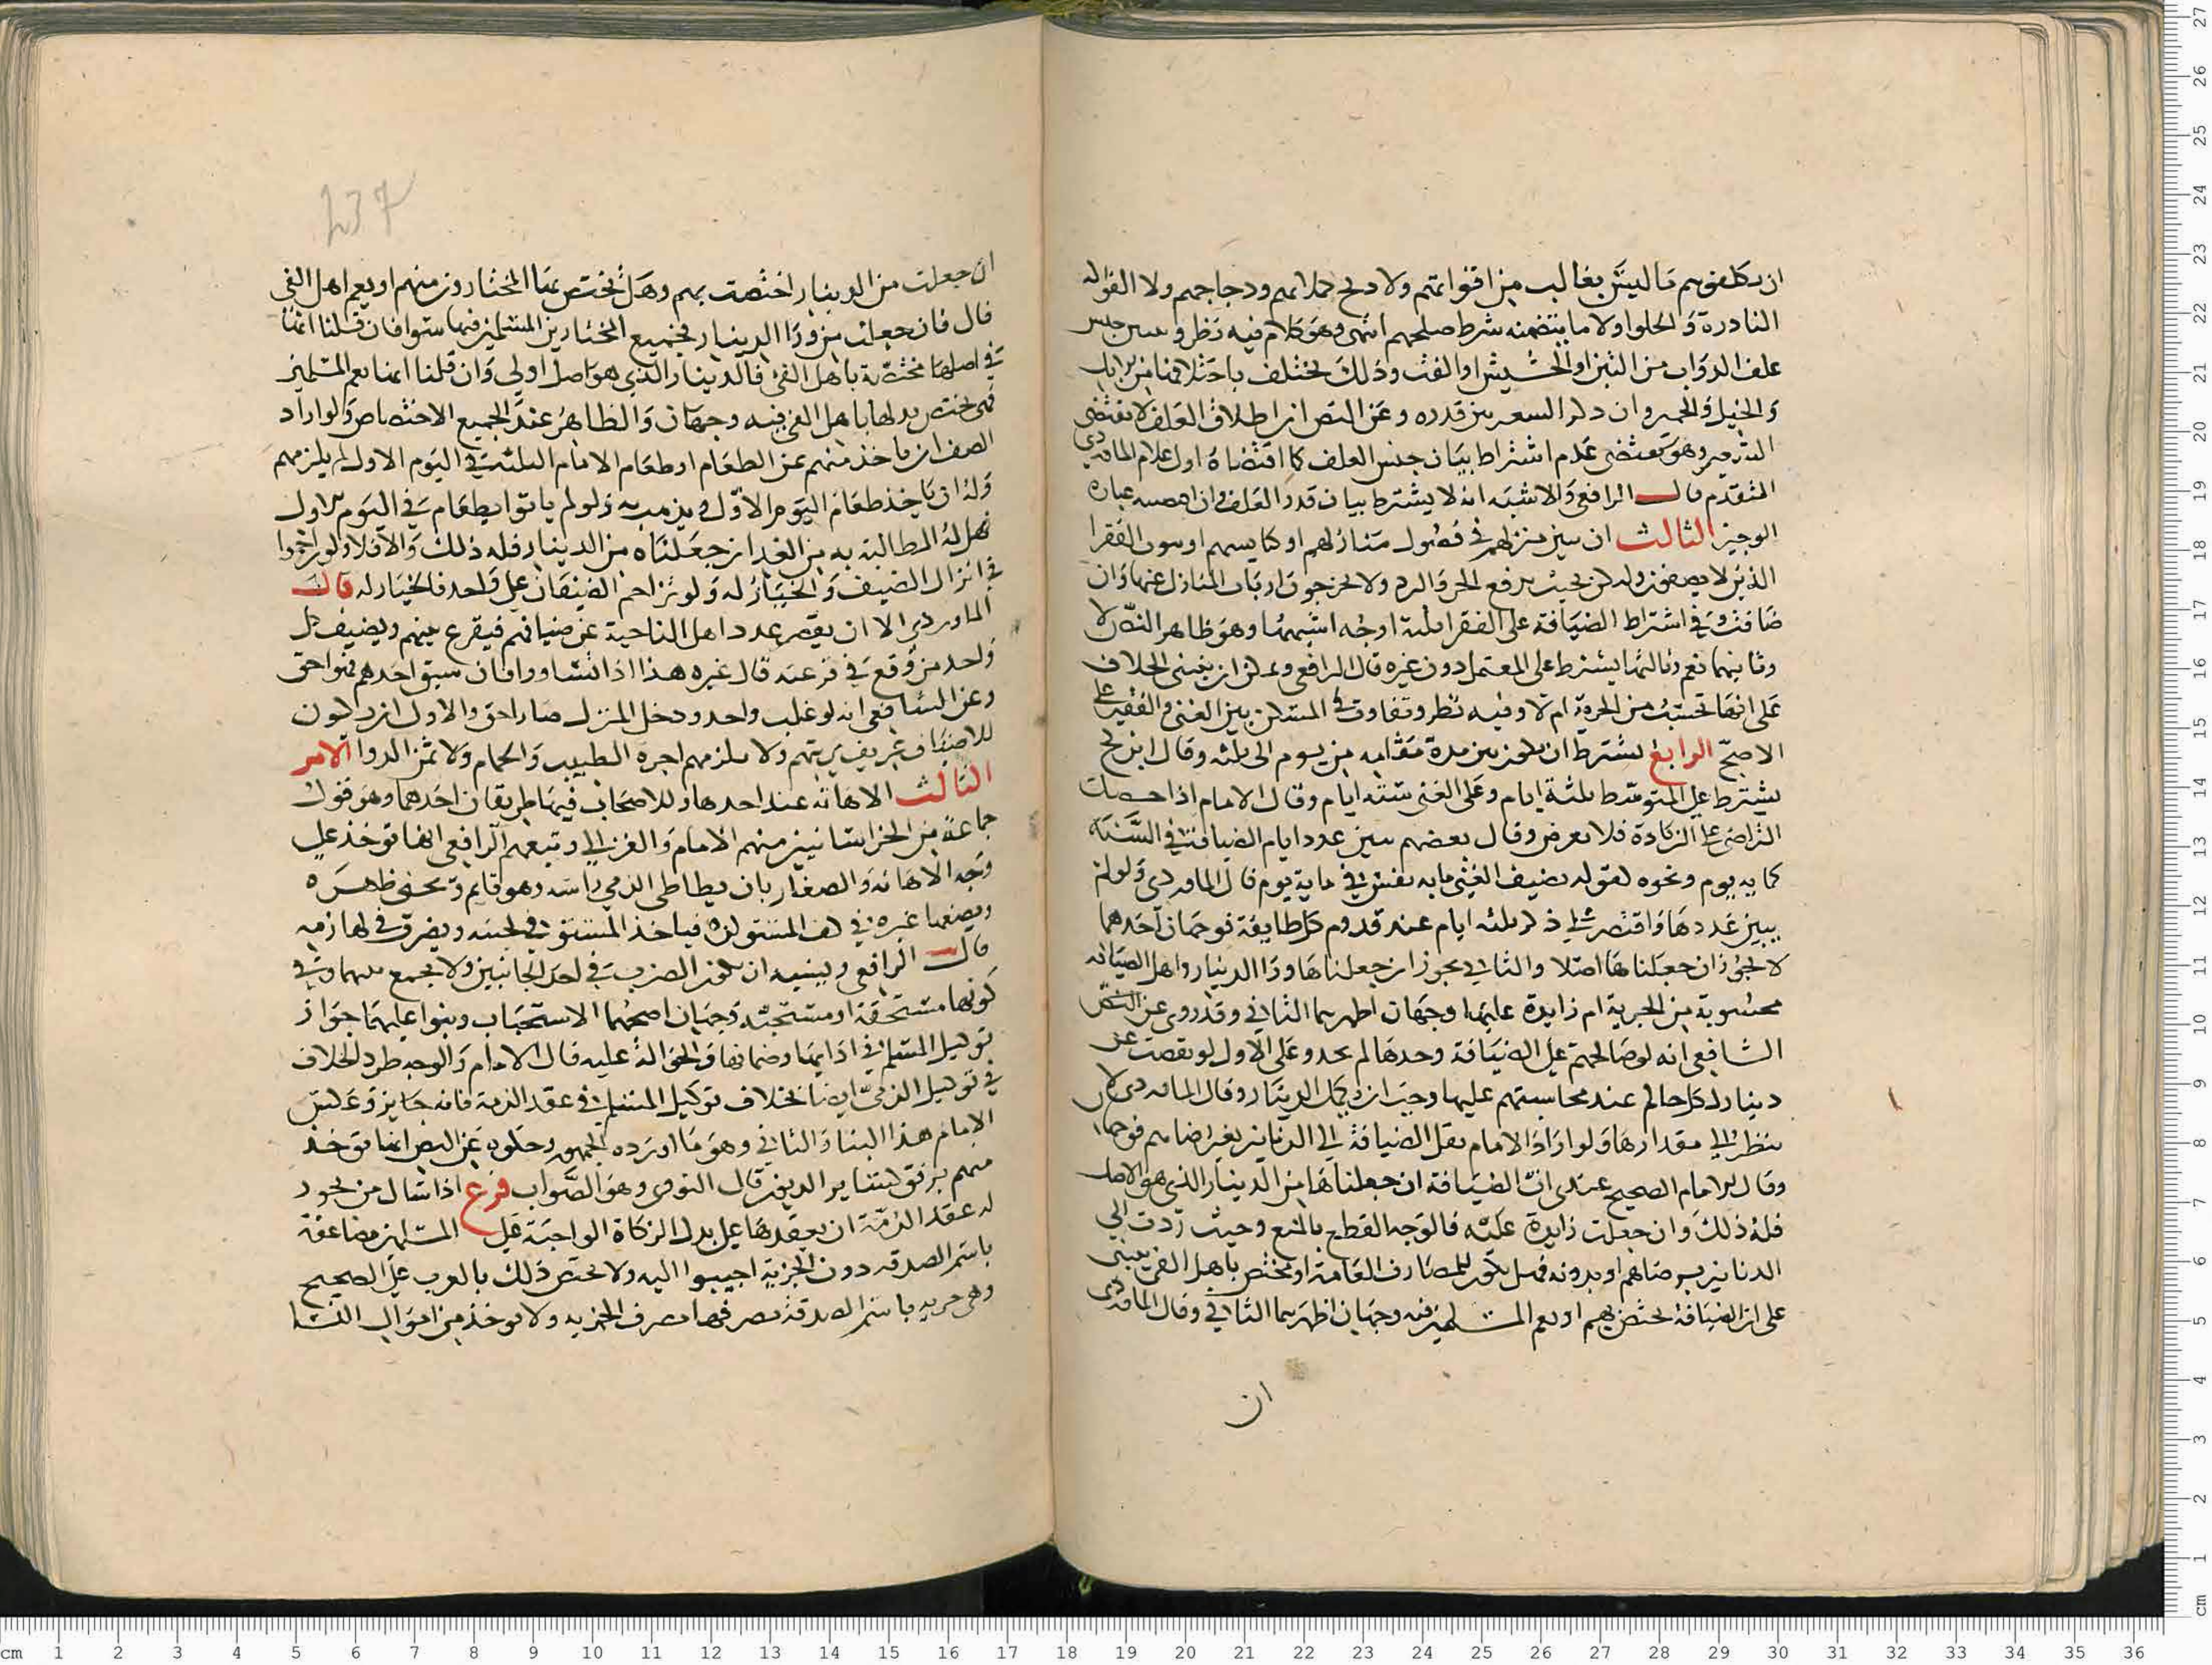 ان يكلفوهم ما ليس بغالب من اقواتهم ولا ذبح حملانهم ودجاجهم ولا الفواكه
النادرة والحلوا ولا ما يتضمنه شرط صلحهم انتهى وهو كلام فيه نظر ويبين جنس
علف الدواب من التبن او الحشيش او القت وذلك يختلف باختلافنا من الابل
والخيل والحمير وان ذكر الشعير بين قدره وعن النص ان اطلاق العلف لا يقتضي
الشعير وهو يقتضي عدم اشتراط بيان جنس العلف كما اقتضاه اول كلام الماوردي
المتقدم قال الرافعي والاشبه انه لا يشترط بيان قدر العلف وان عبارة
الوجيز الثالث ان يبين منزلهم في فضول منازلهم او كنايسهم او بيوت الفقرا
الذين لا يضيفون وليكن بحيث يدفع الحر والبرد ولا يخرجون ارباب المنازل عنها وان
ضاقت وفي اشتراط الضيافة على الفقرا ثلثة اوجه اشبهها وهو ظاهر النص لا
وثانيها نعم وثالثها يشترط على المعتمل دون غيره قال الرافعي ويمكن ان يبنى الخلاف
على انها تحسب من الجزية ام لا وفيه نظر وتفاوت في المسكن بين الغني والفقير على
الاصح الرابع يشترط ان يكون بين مدة مقامه من يوم الى ثلثة وقال ابن كج
يشترط على المتوسط ثلثة ايام وعلى الغني ستة ايام وقال الامام اذا حصل
التراضي على الزيادة فلا يعرض وقال بعضهم يبين عدد ايام الضيافة في السنة
كماية يوم ونحوه لقوله يضيف الغني ماية نفس في ماية يوم قال الماوردي ولو لم
يبين عددها واقتصر على ذكر ثلثة ايام عند قدوم كل طايفة فوجهان احدهما
لا يجوز ان جعلناها اصلا والثاني يجوز ان جعلناها ورا الدينار وهل الضيافة
محسوبة من الجزية ام زايدة عليها وجهان اظهرهما الثاني وقد روي عن النص
الشافعي انه لو صالحهم على الضيافة وحدها لم يجز وعلى الاول لو نقصت عن
دينار لكل حالم عند محاسبتهم عليها وجب ان يكمل الدينار وقال الماوردي لا
ينظر الى مقدارها ولو اراد الامام نقل الضيافة الى الدنانير بغير رضاهم فوجهان
وقال الامام الصحيح عندي ان الضيافة ان جعلناها من الدينار الذي هو الاصل
فله ذلك وان جعلت زايدة عليه فالوجه القطع بالمنع وحيث ردت الى
الدنانير برضاهم او بدونه فهل يكون للمصارف العامة او يختص باهل الفي يبنى
على ان الضيافة يختص بهم او يعم المسلمين فيه وجهان اظهرهما الثاني وقال الماوردي
ان
237
ان جعلت من الدينار اختصت بهم وهل يختص بها المختارون منهم او يعم اهل الفي
قال فان جعلت من ورا الدينار فجميع المختارين المسلمين فيها سوا فان قلنا انها
في اصلها مختصة باهل الفي فالدينار الذي هو اصل اولى وان قلنا انها تعم المسلمين
فهل يختص بدلها باهل الفي فيه وجهان والظاهر عند الجميع الاختصاص ولو اراد
الضيف ان ياخذ منهم عن الطعام او طعام الايام الثلثة في اليوم الاول لم يلزمهم
وله ان ياخذ طعام اليوم الاول ويذهب به ولو لم ياتوا بطعام في اليوم الاول
فهل له المطالبة به من الغد ان جعلناه من الدينار فله ذلك والا فلا ولو تزاحموا
في انزال الضيف والخيار له ولو تزاحم الضيفان على واحد فالخيار له قال
الماوردي الا ان يقصر عدد اهل الناحية عن ضيافتهم فيقرع بينهم ويضيف كل
واحد من وقع في قرعته قال غيره هذا اذا تساووا فان سبق احدهم فهو احق
وعن الشافعي انه لو غلب واحد ودخل المنزل صار احق والاول ان يكون
للاضياف عريف يرتبهم ولا يلزمهم اجرة الطبيب والحمام ولا ثمن الدوا الامر
الثالث الاهانة عند احدها وللاصحاب فيها طريقان احدهما وهو قول
جماعة من الخراسانيين منهم الامام والغزالي وتبعهم الرافعي انها توخذ على
وجه الاهانة والصغار بان يطاطي الذمي راسه وهو قايم ويحني ظهره
ويضعها غيره في كف المستوفي فياخذ المستوفي بلحيته ويضرب في لهازمه
قال الرافعي ويشبه ان يكون الضرب في احد الجانبين ولا يجمع بينهما وفي
كونها مستحقة او مستحبة وجهان اصحهما الاستحباب وبنوا عليهما جواز
توكيل المسلم في ادايها وضمانها والحوالة عليه قال الامام والوجه طرد الخلاف
في توكيل الذمي ايضا بخلاف توكيل المسلم في عقد الذمة فانه جايز وعكس
الامام هذا البنا والثاني وهو ما اورده الجمهور وحكوه عن النص انها توخذ
منهم برفق كساير الديون قال النووي وهو الصواب فرع اذا سال من يجوز
له عقد الذمة ان يعقدها على بدل الزكاة الواجبة على المسلمين مضاعفة
باسم الصدقة دون الجزية اجيبوا اليه ولا يختص ذلك بالعرب على الصحيح
وهي جزية باسم الصدقة تصرف مصرف الجزية ولا توخذ من اموال النسا